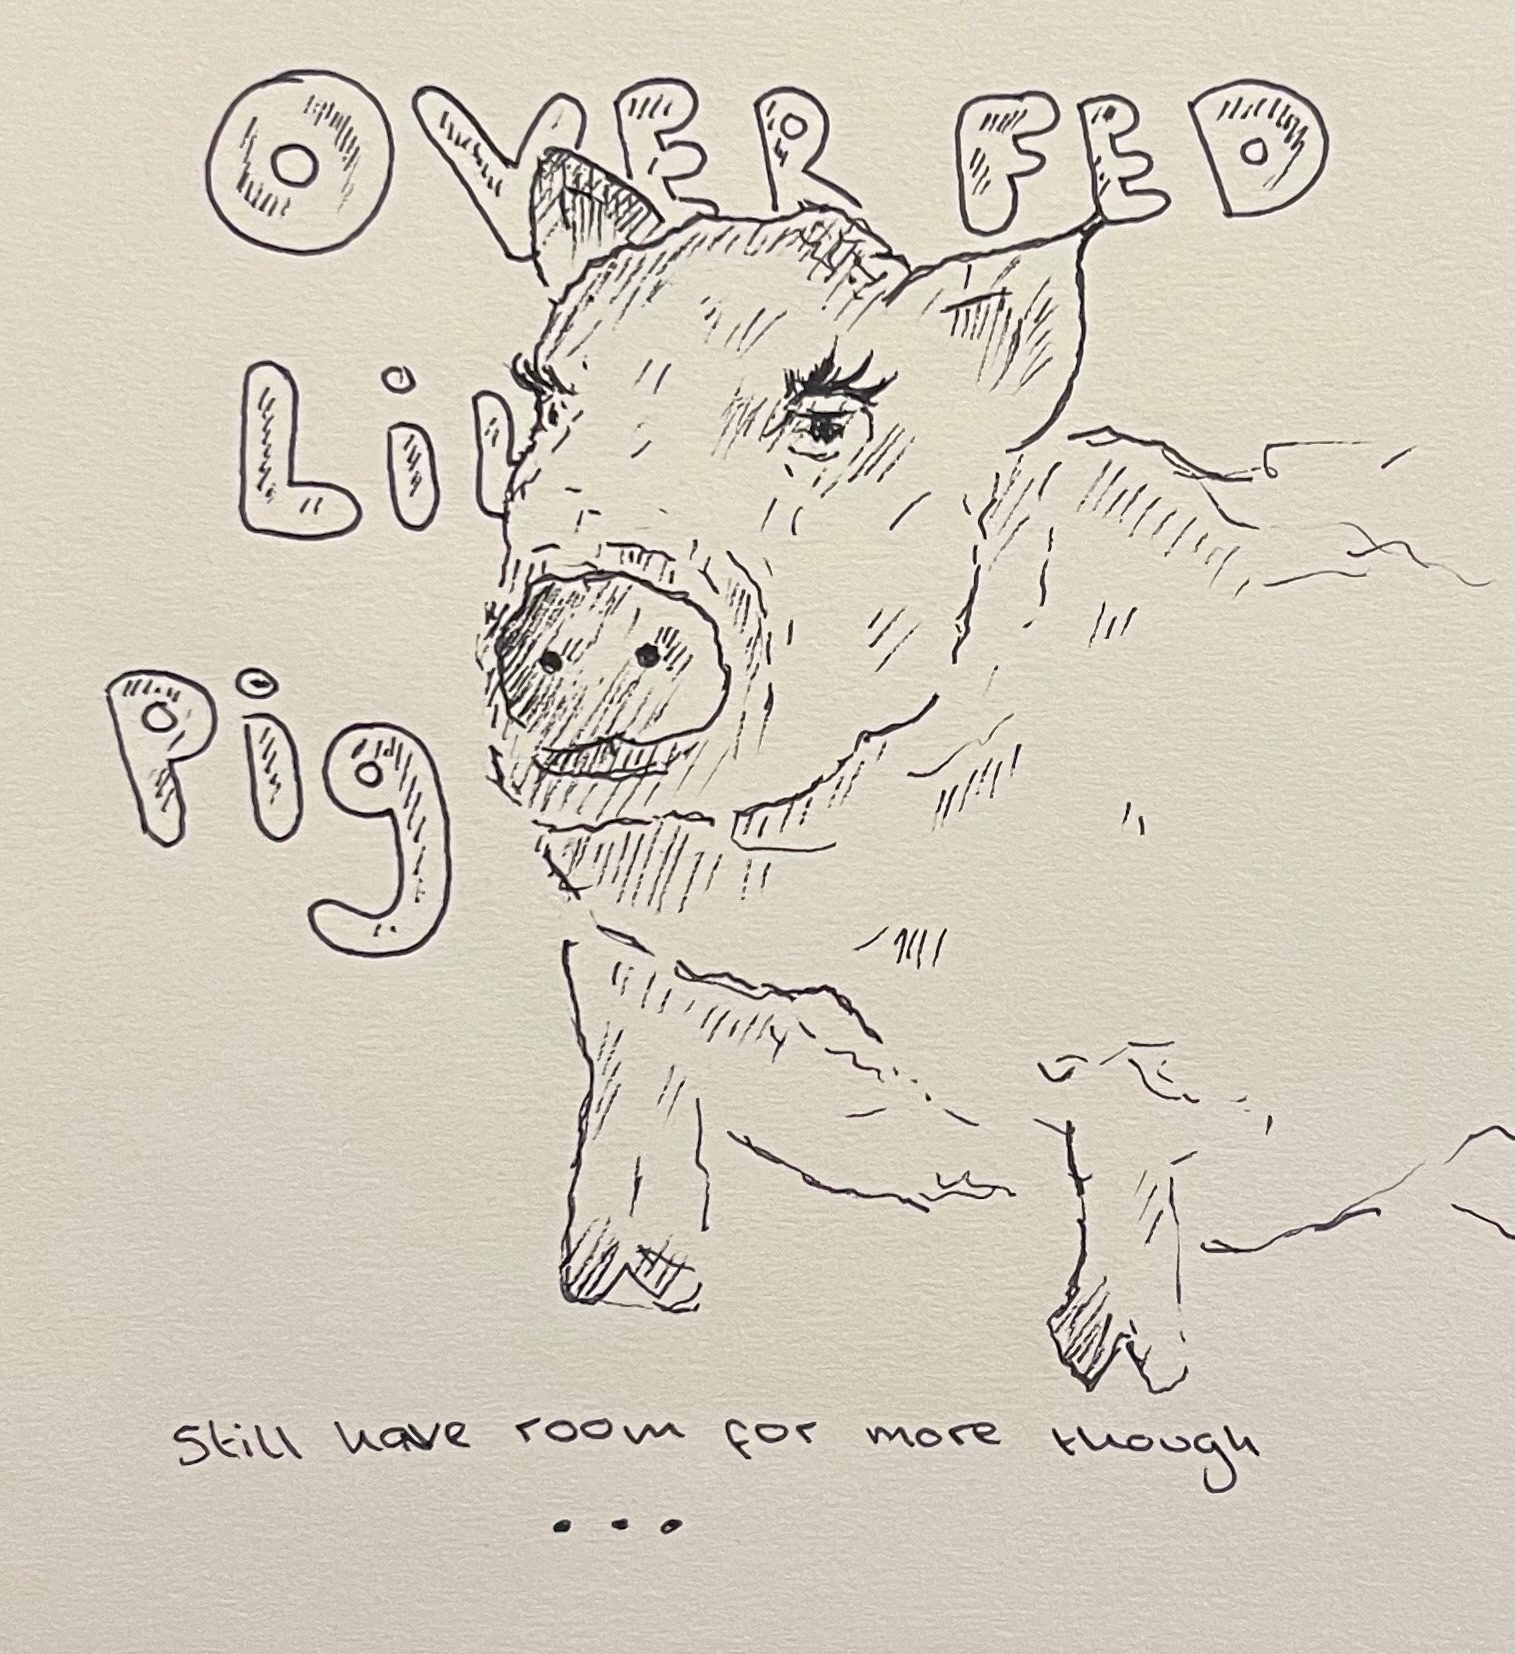 OVER FED
Lil
Pig
Still have room for more though
...